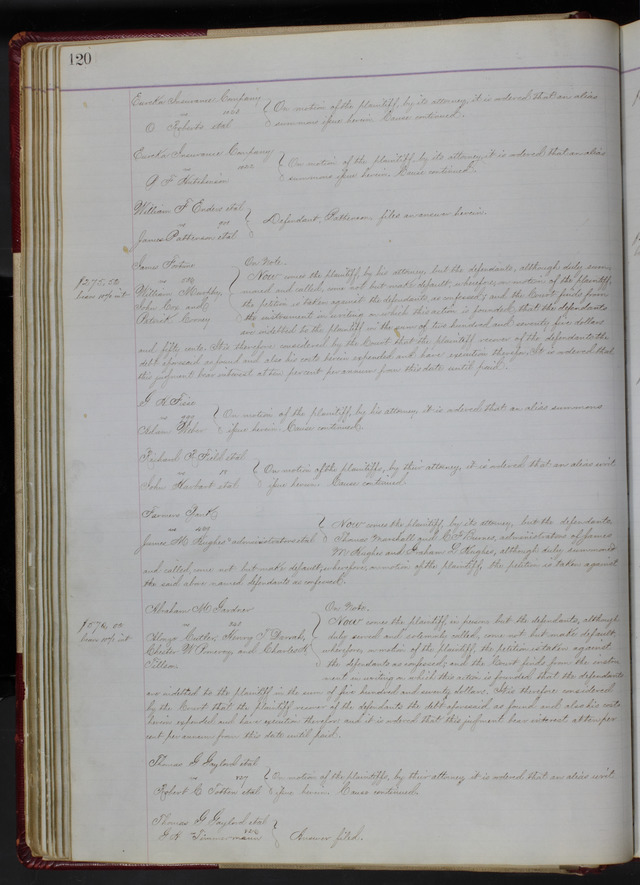 120
Eureka Insurance Company
vs
O Roberts etal
On motion of the plaintiff, by its attorney, it is ordered that an alias
summons issue herein. Cause continued.
Eureka Insurance Company
vs
A F Hutchinson
On motion of the plaintiff by its attorney, it is ordered that an alias
summons issue herein. Cause continued.
William F Enders etal
vs
James Patterson etal
Defendant, Patterson files answer herein.
James Fortune
vs
William Murphy
John Coy and
Patrick Comey
$275.50
bears 10% int
On Note.
Now comes the plaintiff, by his attorney, but the defendants, although duly sum-
moned and called, come not but make default; wherefore, on motion of the plaintiff,
the petition is taken against the defendants as confessed; and the Court finds from
the instrument in writing on which this action is founded, that the defendants
are indebted to the plaintiff in the sum of two hundred and seventy five dollars
and fifty cents. It is therefore considered by the Court that the plaintiff recover of the defendants the
debt aforesaid as found and also his costs herein expended and have execution therefor. It is ordered that
this judgment bear interest at ten per cent per annum from this date until paid.
vs
Adam Weber
On motion of the plaintiff, by his attorney it is ordered that an alias summons
issue herein. Cause continued.
Richard R Field etal
vs
John Harbart etal
On motion of the plaintiffs, by their attorney, it is ordered that an alias writ
issue herein. Cause continued.
Farmers Bank
vs
James M Hughes administrators etal
Now comes the plaintiff, by its attorney, but the defendants
Thomas Marshall and Barnes, administrators of James
M Hughes and Graham L Hughes, although duly summoned
and called, come not but make default; wherefore, on motion of the plaintiff, the petition is taken against
the said above named defendants as confessed.
Abraham McGardner
vs
Almyr Cutler, Henry T
Chester W Pomeroy and Charles H
Tillson
$570.00
bears 10% int
On Note.
Now comes the plaintiff, in person but the defendants, although
duly served and solemnly called, come not but make default;
wherefore, on motion of the plaintiff, the petition is taken against
the defendants as confessed; and the Court finds from the instru-
ment in writing on which this action is founded that the defendants
are indebted to the plaintiff in the sum of five hundred and seventy dollars. It is therefore considered
by the Court that the plaintiff recover of the defendants the debt aforesaid as found and also his costs
herein expended and have execution therefor; and it is ordered that this judgment bear interest at ten per
cent per annum from this date until paid.
Thomas G Gaylord etal
vs 927
Robert C Totten etal
On motion of the plaintiffs, by their attorney it is ordered that an alias writ
issue herein. Cause continued.
Thomas G Gaylord etal
Timmermann
Answer filed.